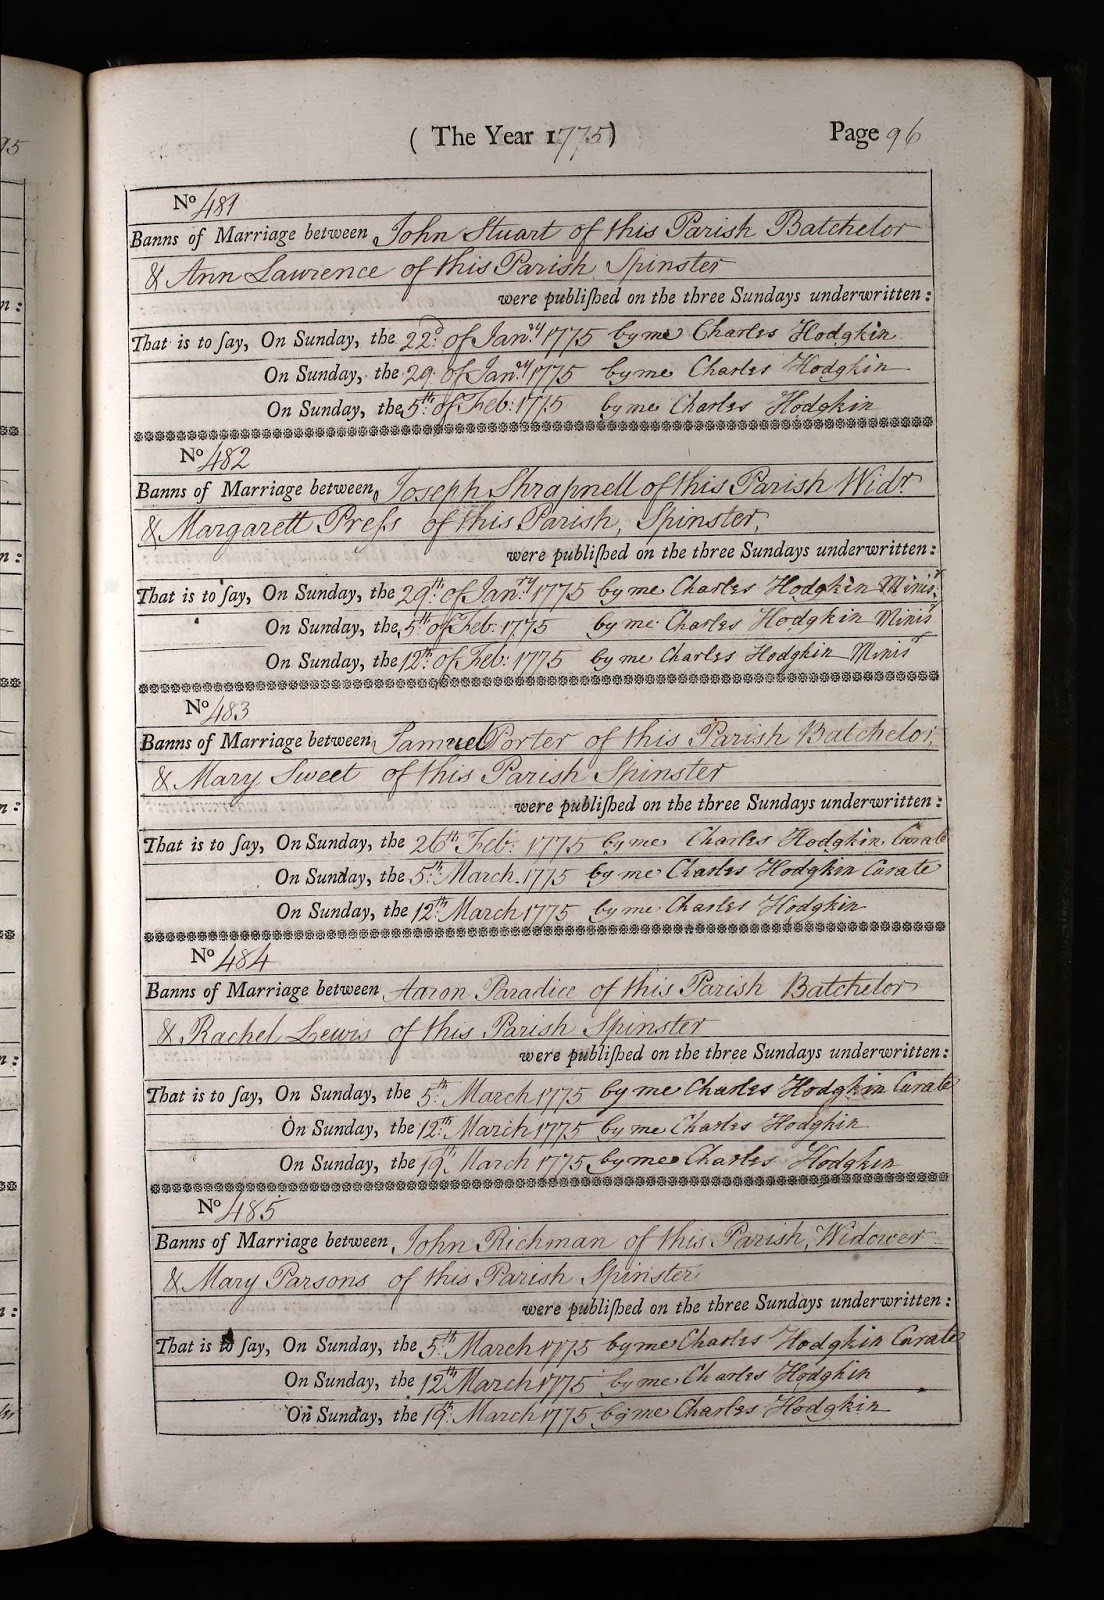 95
( The Year 1775 ) Page 96
No 481
Banns of Marriage between John Stuart of this Parish Batchelor
& Ann Lawrence of this Parish Spinster
were publiſhed on the three Sundays underwritten:
That is to ſay, On Sunday, the 22d of Janry 1775 by me Charles Hodgkin
On Sunday, the 29 of Janry 1775 by me Charles Hodgkin
On Sunday, the 5th of Feb: 1775 by me Charles Hodgkin
No 482
Banns of Marriage between Joseph Shrapnell of this Parish Widr
& Margarett Preſs of this Parish, Spinster,
were publiſhed on the three Sundays underwritten:
That is to ſay, On Sunday, the 29th of Janry 1775 by me Charles Hodgkin Minisr
On Sunday, the 5th of Feb: 1775 by me Charles Hodgkin Minisr
On Sunday, the 12th of Feb: 1775 by me Charles Hodgkin Minisr
No 483
Banns of Marriage between Samuel Porter of this Parish Batchelor,
& Mary Sweet of this Parish Spinster
were publiſhed on the three Sundays underwritten:
That is to ſay, On Sunday, the 26th Feb: 1775 by me Charles Hodgkin Curate
On Sunday, the 5th March 1775 by me Charles Hodgkin Curate
On Sunday, the 12th March 1775 by me Charles Hodgkin
No 484
Banns of Marriage between Aaron Paradice of this Parish Batchelor
& Rachel Lewis of this Parish Spinster
were publiſhed on the three Sundays underwritten:
That is to ſay, On Sunday, the 5th March 1775 by me Charles Hodgkin Curate
On Sunday, the 12th March 1775 by me Charles Hodgkin
On Sunday, the 19th March 1775 by me Charles Hodgkin
No 485
Banns of Marriage between John Richman of this Parish, Widower
& Mary Parsons of this Parish Spinster
were publiſhed on the three Sundays underwritten:
That is to ſay, On Sunday, the 5th March 1775 by me Charles Hodgkin Curate
On Sunday, the 12th March 1775 by me Charles Hodgkin
On Sunday, the 19th March 1775 by me Charles Hodgkin